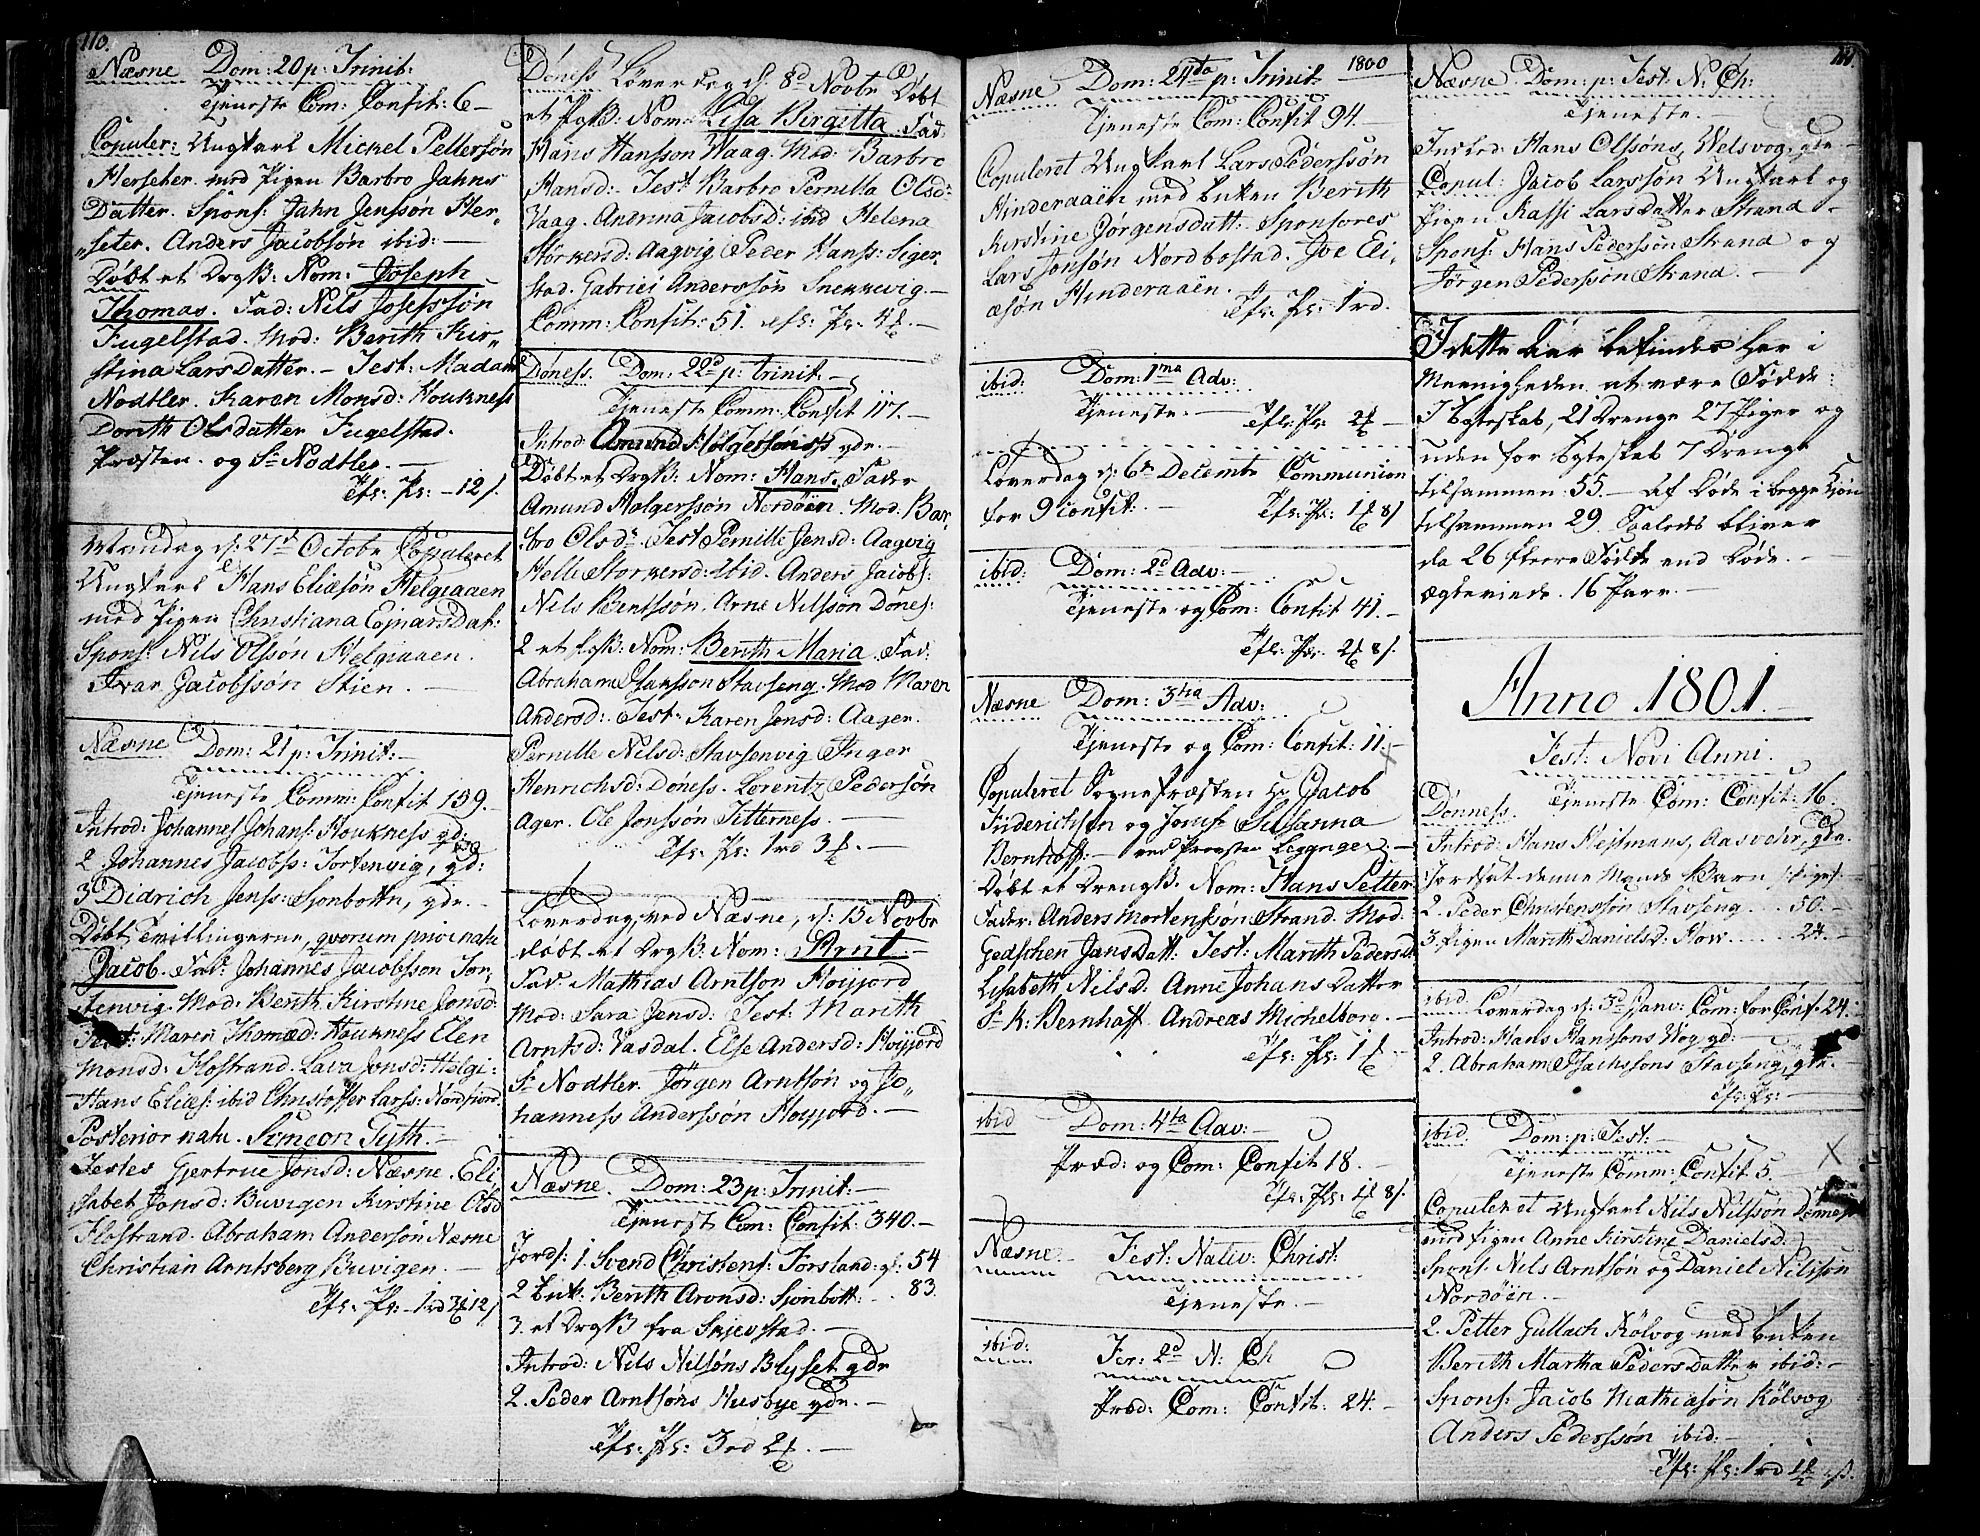 110.
Næsne Dom: 20 p: Trinit:
Tjeneste Com: Confit: 6 -
Copuler: Ungkarl Mickel Pettersøn
Herseter med Pigen Barbro Jahns
Datter. Spons: Jahn Jenssøn Her„
„seter. Anders Jacobsøn ibid: -
Døbt et Drgb: Nom: Joseph
Thomas. Fad: Nils Josefssøn
Fugelstad. Mod: Berith Kir„
stina Lars Datter. - Test: Madam
Nodtler. Karen Monsd: Houkness
Dorith Ols datter Fugelstad.
Præsten og Sr Nodtler. -
Tfl: Ps: - 12 s.
Mandag d: 27d Octobr Copuleret
Ungkarl Hans Eliæsøn Helgaaen
med Pigen Christiana Ejnars Dat:
Spons: Nils Olssøn Helgaaen.
Ivar Jacobssøn Stien. -
Næsne Dom: 21 p: Trinit: -
Tjeneste Comm: Confit 159.
Introd: Johannes Johans: Houkness gd:
2 Johannes Jacobs: Tortenvig, gd:
3 Didrich Jenss: Sjonbotn, gde. -
Døbt Tvillingerne, qvorum prior natu
Jacob. Fad: Johannes Jacobssøn Tor„
tenvig. Mod: Berith Kirstine Jonsd:
Test: Maren Thomæd: Houkness Elen
Monsd: Flostrand. Lava Jonsd: Helgi:
Hans Eliæs: ibid Christoffer Larss: Nordfiord.
Posterior natu. Simeon Tyth. -
Testes Gjertrue Jonsd: Næsne. Eli
sabet Jonsd: Buvigen Kirstine Olsd
Flostrand. Abraham Andersøn Næsne
Christian Arntsberg Buvigen. -
Tfl: Ps: - 1 rd 3 # 12 s
Döness Løverdag d: 8d Novbr Døbt
et Pgb: Nom: Lisa Birgitta. Fad:
Hans Hansson Waag. Mod: Barbro
Hansd: - Test Barbro Pernilla Olsd:
Vaag. Anenna Jacobsd: ibid Helena
Storkersd: Aagvig Peder Hanss: Siger„
stad. Gabriel Anderssøn Snekkevig. -
Comm: Confit: 51. Tfl: Ps: 4 #. -
Döness. Dom: 22d p: trinit. -
Tjeneste Comm: Confit 117. -
Introd Amund Holgersøns gde. -
Døbt et Drgb: Nom: Hans. Fader
Amund Holgerssøn Nordöen. Mod: Bar„
bro Olsdr. Test Pernille Jensd: Aagvig
Helle Storkersd: ibid. Anders Jacobs:
Nils Bentssøn. Arne Nilsson Dönes:
2 et Pgb: Nom: Berith Maria. Fad:
Abraham Isacsson Stavseng. Mod Maren
Andersd: Test: Karen Jonsd: Aager.
Pernille Nelsd: Stavsenvig Inger
Henrichsd: Döness. Lorentz Pedersøn
Ager. Ole Jonssøn Titterness. -
Tfl: Ps: 1 rd 3 #. -
Løverdag, ved Næsne, d: 15 Novbr
døbt et Drgb: Nom: Arnt.
Fad: Mathias Arntson Høyjord
Mod: Sara Jensd: Test: Marith
Arntsd: Vasdal. Else Andersd: Høyjord
Sr Nodtler. Jørgen Arntsøn og Jo„
hanness Anderssøn Høyjord. -
Næsne. Dom: 23 p: Trinit: -
Tjeneste Com: Confit: 340. -
Jords: 1. Svend Christens: Forsland: gl: 54
2 Enk: Berith Aronsd: Sjonbott: . . 83.
3. et Drgb fra Skjevstad. -
Introd: Nils Nilsøns Blyset gde
2. Peder Arntsøns Husbye gde. -
Tfl: Ps: 3 rd 2 #. -
Næsne Dom: 24ta p: Trinit 1800
Tjeneste Com: Confit 94. -
Copuleret Ungkarl Lars Pederssøn
Hinderaaen med Enken Berith
Kirstine Jørgensdatt: Sponsores
Lars Jonsøn Nordbostad. Joe Eli„
æsøn Hinderaaen.
Tfl: Ps: 1 rd.
ibid: Dom: 1ma Adv:
Tjeneste. -
Tfl: Ps: 2 # -
Løverdag d: 6d Decembr Communion
for 9 Confit: -
Tfl: Ps: 1 # 8 s
ibid: Dom: 2d Adv: -
Tjeneste og Com: Confit 41. -
Tfl: Ps: 2 # 8 s.
Næsne Dom: 3tia Adv:
Tjeneste og Com: Confit: 11. -
Copuleret Sognepræsten Hr Jacob
Friderichsen og Jomfr Susanna
Bernhoff: - ved Provsten
Døbt et Drengb. Nom: Hans Petter
Fader: Anders Mortenssøn Strand. Mod:
Gedschen Jans Datt: Test: Marith Pedersd
Lisabeth Nilsd. Anne Johans Datter
Sr K: Bernhoff. Andreas Michelborg. -
Tfl: Ps: 1 # -
ibid Dom: 4ta Adv: -
Præd: og Com: Confit 18. -
Tfl: Ps: 1 # 8 s.
Næsne. Fest: Nativ: Christ:
Tjeneste. -
ibid: Fer: 2d N: Ch
Præd: Com: Confit: 24. -
111.
Næsne. Dom: p: Fest. N: Ch:
Tjeneste. -
Introd: Hans Olssøns, Welsvog, gde -
Copul: Jacob Larssøn Ungkarl og
Pigen Kassi Lars Datter Strand -
Spons: Hans Pederssøn Strand og
Jörgen Pederssøn Strand. -
I dette Aar befindes her i
Meenigheden at være Fødde:
I Egteskab, 21 Drenge 27 Piger og
uden for Egteskab 7 Drenge
tilsammen 55. - Af Døde i begge Kiøn
tilsammen 29. Saaledes bliver
da 26 fleere Fødte end Døde. -
Egteviede. 16 Parr. -
Anno 1801. -
Fest: Novi Anni.
Dönness. Tjeneste Com: Confit: 16.
Introd: Hans Hejtmans, Aasvær, gde.
Jordsat denne Mands Barn
2. Peder Christenssøn Stavseng . . . 50. -
3 Pigen Marith Danielsd. Flow. . . . 24. -
ibid. Løverdag d: 3d Janv: Com: for Conf. 24.
Introd: Hans Hanssøns Wog gd: -
2. Abraham Isachssøns Stavseng, gde. -
Tfl: Ps: -
ibid. Dom: p: Fest: -
Tjeneste Comm: Confit 5.
Copuleret Ungkarl Nils Nilssøn Döness
med Pigen Anne Kirstine Danielsd.
Spons. Nils Arntsøn og Daniel Nilsson
Nordöen. -
2. Petter Gullach Kölvog med Enken
Berith Martha Peders Datter ibid: -
Spons: Jacob Mathiasøn Kölvog
Anders Pederssøn ibid: -
Tfl: Ps: 1 rd 1 #